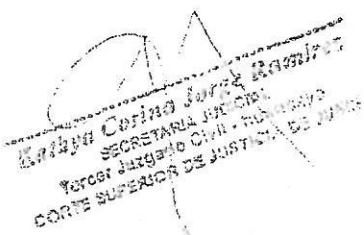 Kathya Corina Jorge Ramirez
SECRETARIA JUDICIAL
Tercer Juzgado Civil - HUANCAYO
CORTE SUPERIOR DE JUSTICIA DE JUNIN